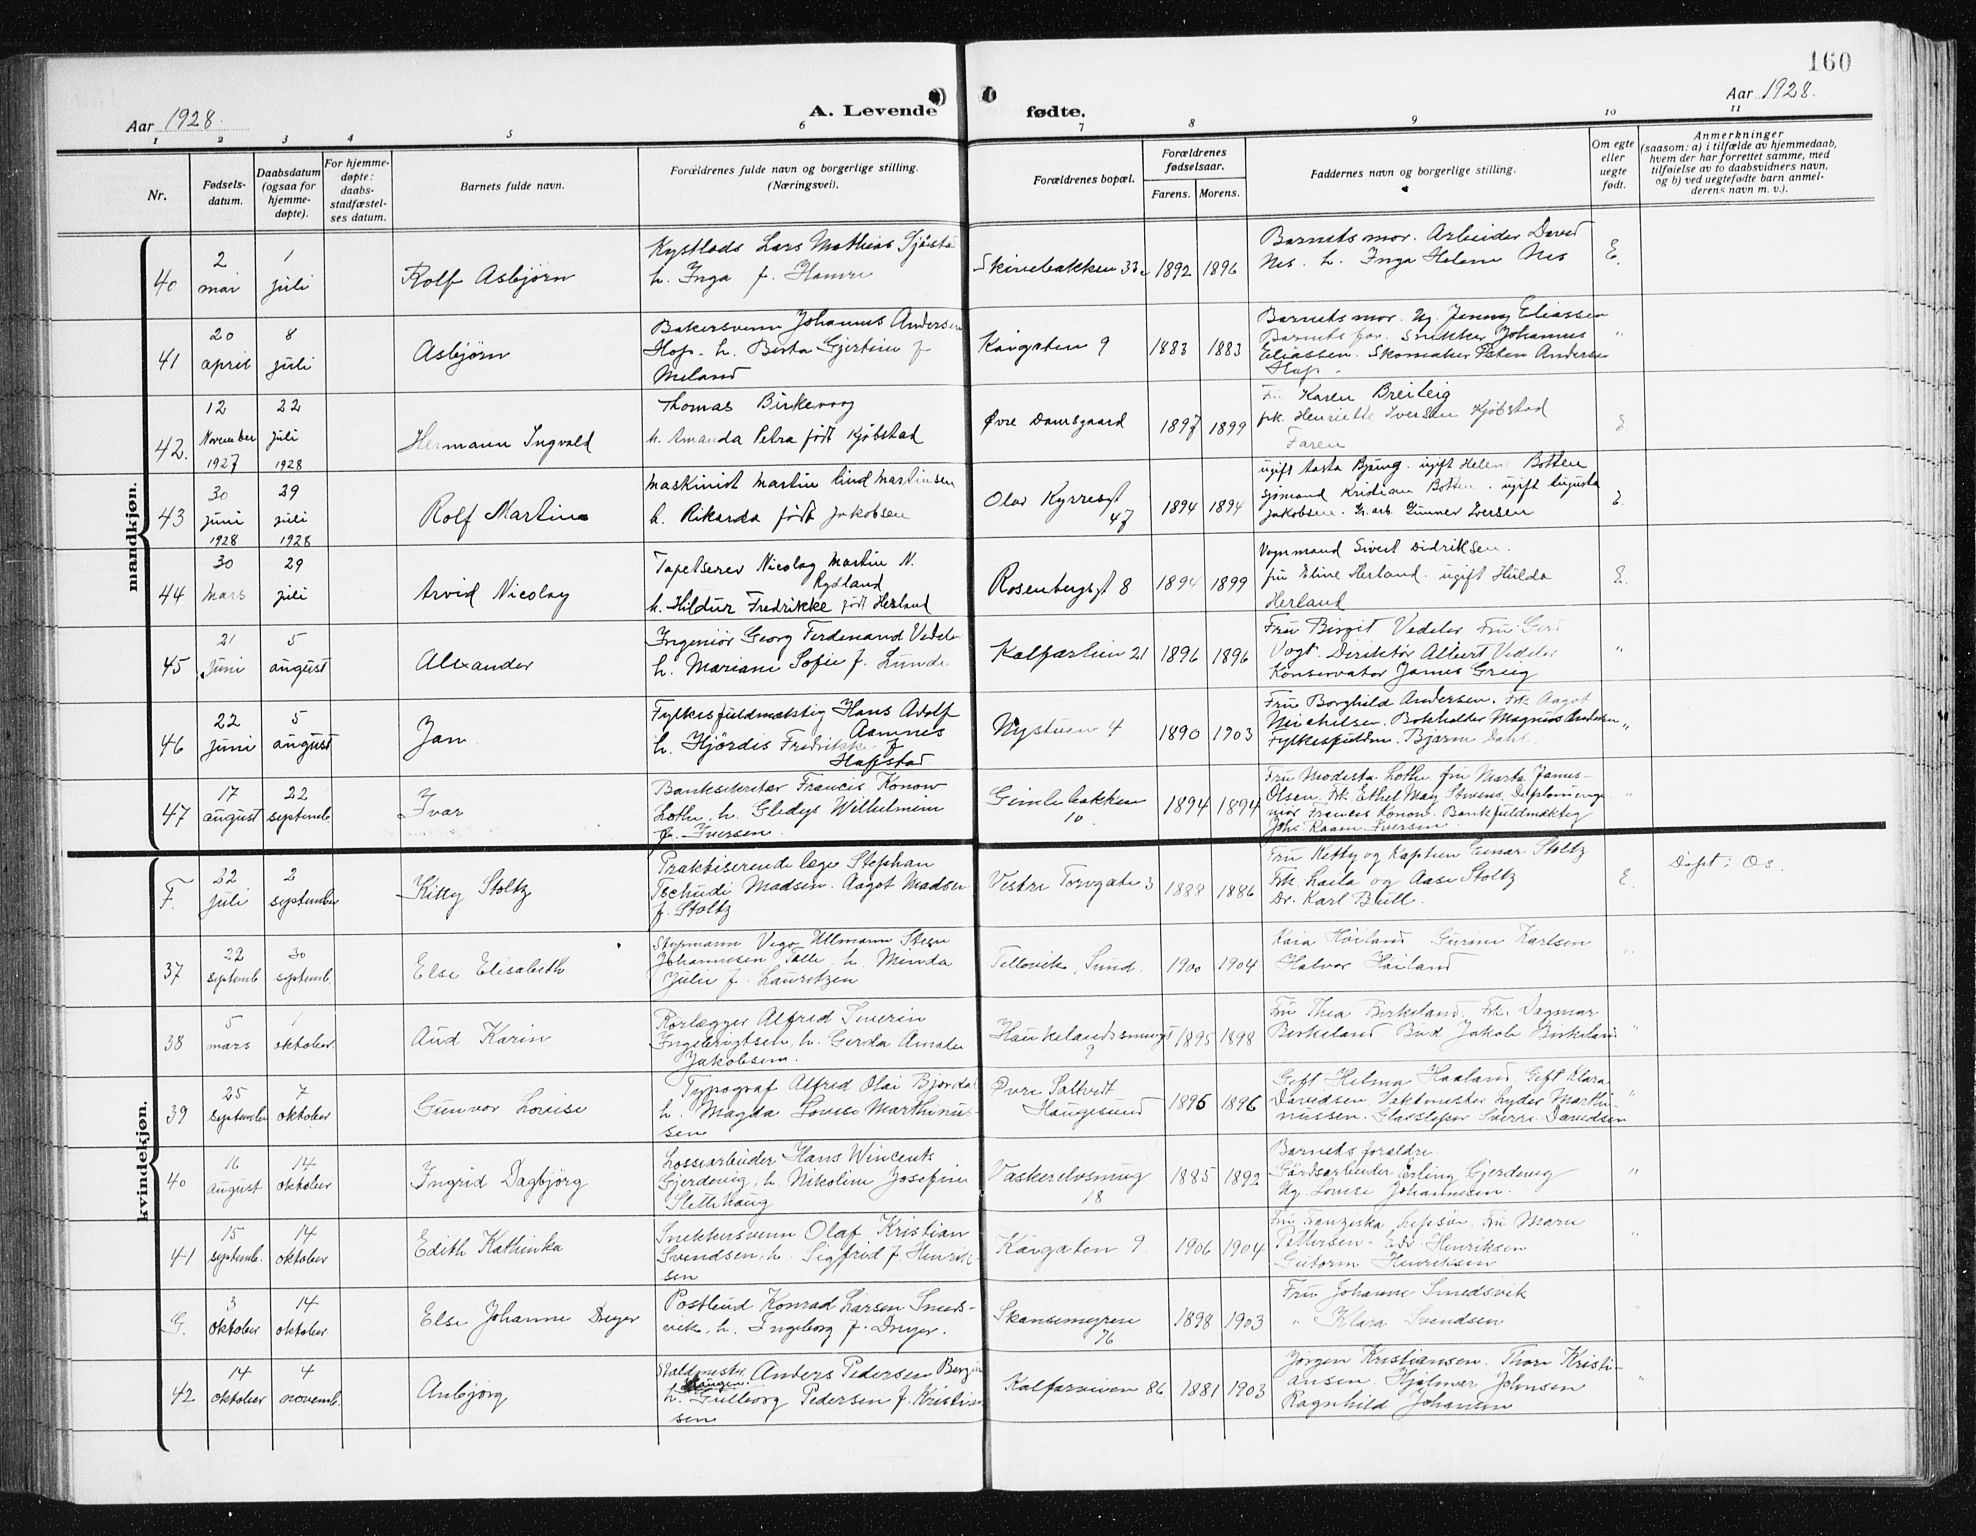 160
Aar 1928. A. Levende fødte. Aar 1928.
1 2 3 4 5 6 7 8 9 10 11
Nr.
Fødsels-
datum.
Daabsdatum
(ogsaa for
hjemme-
døpte).
For hjemme-
døpte:
daabs-
stadfæstel-
ses datum.
Barnets fulde navn.
Forældrenes fulde navn og borgerlige stilling.
(Næringsvei).
Forældrenes bopæl.
Forældrenes
fødselsaar.
Farens. Morens.
Faddernes navn og borgerlige stilling.
Om egte
eller
uegte
født.
Anmerkninger
(saasom: a) i tilfælde av hjemmedaab,
hvem der har forrettet samme, med
tilføielse av to daabsvidners navn,
og b) ved uegtefødte barn anmel-
derens navn m. v.).
mandkjøn.
40 2 mai 1 juli Rolf Asbjørn
Lars Mathias
h. Inga f. Hamre
1892 1896
Barnets mor. Arbeider David
Nes. h. Inga Helene Nes
E.
41 20 april 8 juli Asbjørn
Bakersvenn Johannes Andersen
Hop. h. Berta Gjertine f
Meland
Kaigaten 9 1883 1883
Barnets mor. Ug. Jenny Eliassen
Barnets far. Snekker Johannes
Eliassen. Skomaker Andersen
Hop.
"
42. 12 November 1927 22 juli 1928 Hermann Ingvald
Thomas Birkevog
h. Amanda Petra født Kjøbstad
Øvre Damsgaard 1897 1899
Fru Karen Breileig
frk. Henriette Iversen Kjøbstad
Faren
E
43 30 juni 1928 29 juli 1928 Rolf Martin
maskinist Martin Lind Martinsen
h. Rikarda født Jakobsen
Olav Kyrresgt
47
1894 1894
ugift Aasta Bjung. ugift Helene Botten
sjømand Kristian Botten. ugift Augusta
Jakobsen. Gunner Iversen
E.
44 30 mars 29 juli Arvid Nicolay
Tapetserer Nicolay Martin N.
Rydland
h. Hildur Fredrikke født Herland
Rosenbergsgt 8 1894 1899
Vognmand Sivert Didriksen.
fru Eline Herland. ugift Hulda
Herland
E.
45 21 Juni 5 august Alexander
Ingeniør Georg Ferdinand Vedeler
h. Mariane Sofie f. Lunde
Kalfarlien 21 1896 1896
Fru Birgit Vedeler Fru Gerd
Vogt. Direktør Albert Vedeler
Konservator James Grieg
"
46 22 juni 5 august Jan
Fylkesfuldmektig Hans Adolf
Aamnes
h. Hjördis Fredrikke f
Hafstad
Nystuen 4 1890 1903
Fru Borghild Andersen. Frk Aagot
Michelsen. Bokholder Magnus Andersen
Fylkesfuldm. Bjarne Dahl.
"
47 17 august 22 septemb. Ivar
Banksekretær Francis Konow
Lothe, h. Gladys Wilhelmine
f. Iversen.
Gimlebakken
10
1894 1894
Fru Modesta Lothe fru Marta James-
Olsen. Frk. Ethel May Stevens, Diplominge-
niør Francis Konow. Bankfuldmektig
Johs Iversen
"
kvindekjøn.
F. 22 juli 2 september Kitty Stoltz
Praktiserende læge Stephan
Tschudi Madsen. Aagot Madsen
f. Stoltz
Vestre Torvgate 3 1888 1886
Fru Ketty og Kaptein Einar Stoltz
Frk. Laila og Aase Stoltz
Dr. Karl Bull.
E.
Døpt i Os.
37 22 septemb 30 septemb. Else Elisabeth
Styrmann Vigo Ullmann Stein
Johannesen Tolle, h. Minda
Julie f. Lauretzen
Tellevik, Sund. 1900 1904
Kaia Høiland Gurine Karlsen
Halvor Høiland
"
38 5 mars 1 oktober Aud Karin
Rørlægger Alfred Severin
Ingebrigtsen, h. Gerda Amalie
Jakobsen.
Haukelandssmuget
9
1895 1898
Fru Thea Birkeland. Frk. Dagmar
Birkeland Bud Jakob Birkeland
"
39 25 september 7 oktober Gunvor Lovise
Typograf Alfred Olai Bjordal
h. Magda Lovise Marthinus-
sen
Øvre Saltvedt
Haugesund
1895 1896
Gift Helma Haaland, Gift Klara
Davidsen Vaktmester Lyder Marthi-
nussen. Glassliper Sverre Davidsen
"
40 16 august 14 oktober Ingrid Dagbjörg
Lossearbeider Hans Wincents
Gjerdevig, h. Nikoline Josefine
Slettehaug
Vaskerelvsmug
18
1885 1892
Barnets foraldre.
Gårdsarbeider Erling Gjerdevig
Ug. Lovise Johannesen.
"
41 15 septemb. 14 oktober Edith Kathinka
Snekkersvenn Olaf Kristian
Svendsen, h. Sigfrid f. Henrik-
sen
Kaigaten 9. 1906 1904
Fru Franziska Fru Marie
Pettersen. Edv. Henriksen
Gutorm Henriksen
"
G. 3 oktober 14 oktober Else Johanne Dreyer
Postbud Konrad Larsen Smeds-
vik, h. Ingeborg f. Dreyer.
Skansemyren
76
1898 1903
Fru Johanne Smedsvik
" Klara Svendsen
"
42 14 oktober 4 novemb. Anbjörg
Staldmester Anders Pedersen
h. Gullborg Pedersen f. Kristian-
sen
Kalfarveien 86 1881 1903
Jörgen Kristiansen. Thore Kristi-
ansen. Hjalmar Johnsen
Ragnhild Johansen
"